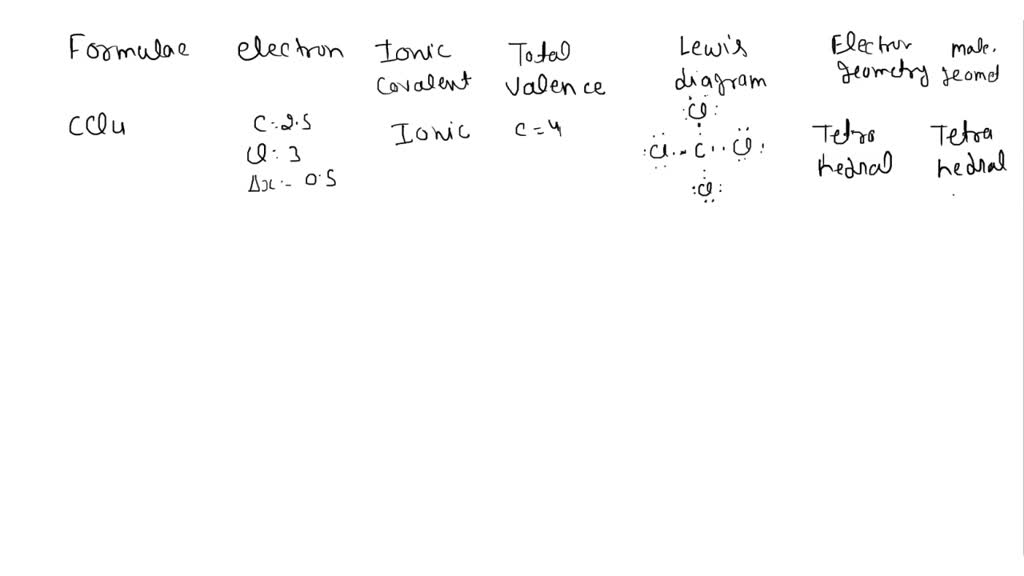 Formulae electron Ionic Total Lewis Electron mole.
Covalent valence diagram geometry geomet
CCl4 C=2.5 Ionic C=4 :Cl: Tetra Tetra
Cl: 3 :Cl..C..Cl: hedral hedral
Δx:- 0.5 :Cl: